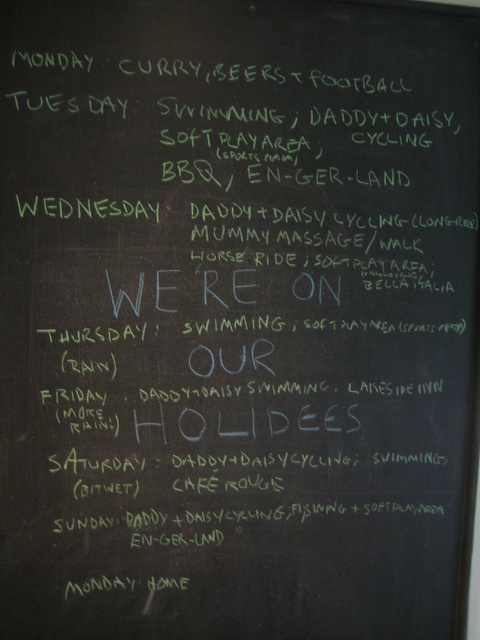 MONDAY: CURRY, BEERS + FOOTBALL
TUESDAY: SWIMMING; DADDY + DAISY,
SOFTPLAY AREA; CYCLING
(SPORTS PLAZA)
BBQ, EN-GER-LAND
WEDNESDAY: DADDY + DAISY CYCLING (LONG RIDE)
MUMMY MASSAGE/WALK
HORSE RIDE; SOFTPLAY AREA;
BELLA ITALIA
WE'RE ON
THURSDAY: SWIMMING; SOFTPLAY AREA (SPORTS PLAZA)
(RAIN)
OUR
FRIDAY: DADDY + DAISY SWIMMING, LAKESIDE INN
(MORE RAIN!)
HOLIDEES
SATURDAY: DADDY + DAISY CYCLING; SWIMMING;
(BIT WET) CAFÉ ROUGE
SUNDAY: DADDY + DAISY CYCLING, FISHING + SOFTPLAY AREA
EN-GER-LAND
MONDAY HOME